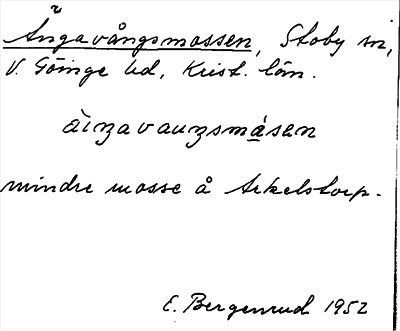 Ängavångsmossen, Stoby sn,
V. Göinge hd, Krist. län.
äiŋavauŋsmåsen
mindre mosse å Arkelstorp.
E. Bergenrud 1952